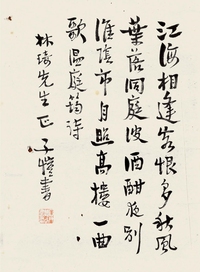 江海相逢客恨多秋風
葉落洞庭波酒酣夜別
淮陰市月照高樓一曲
歌温庭筠詩
先生正 子愷書